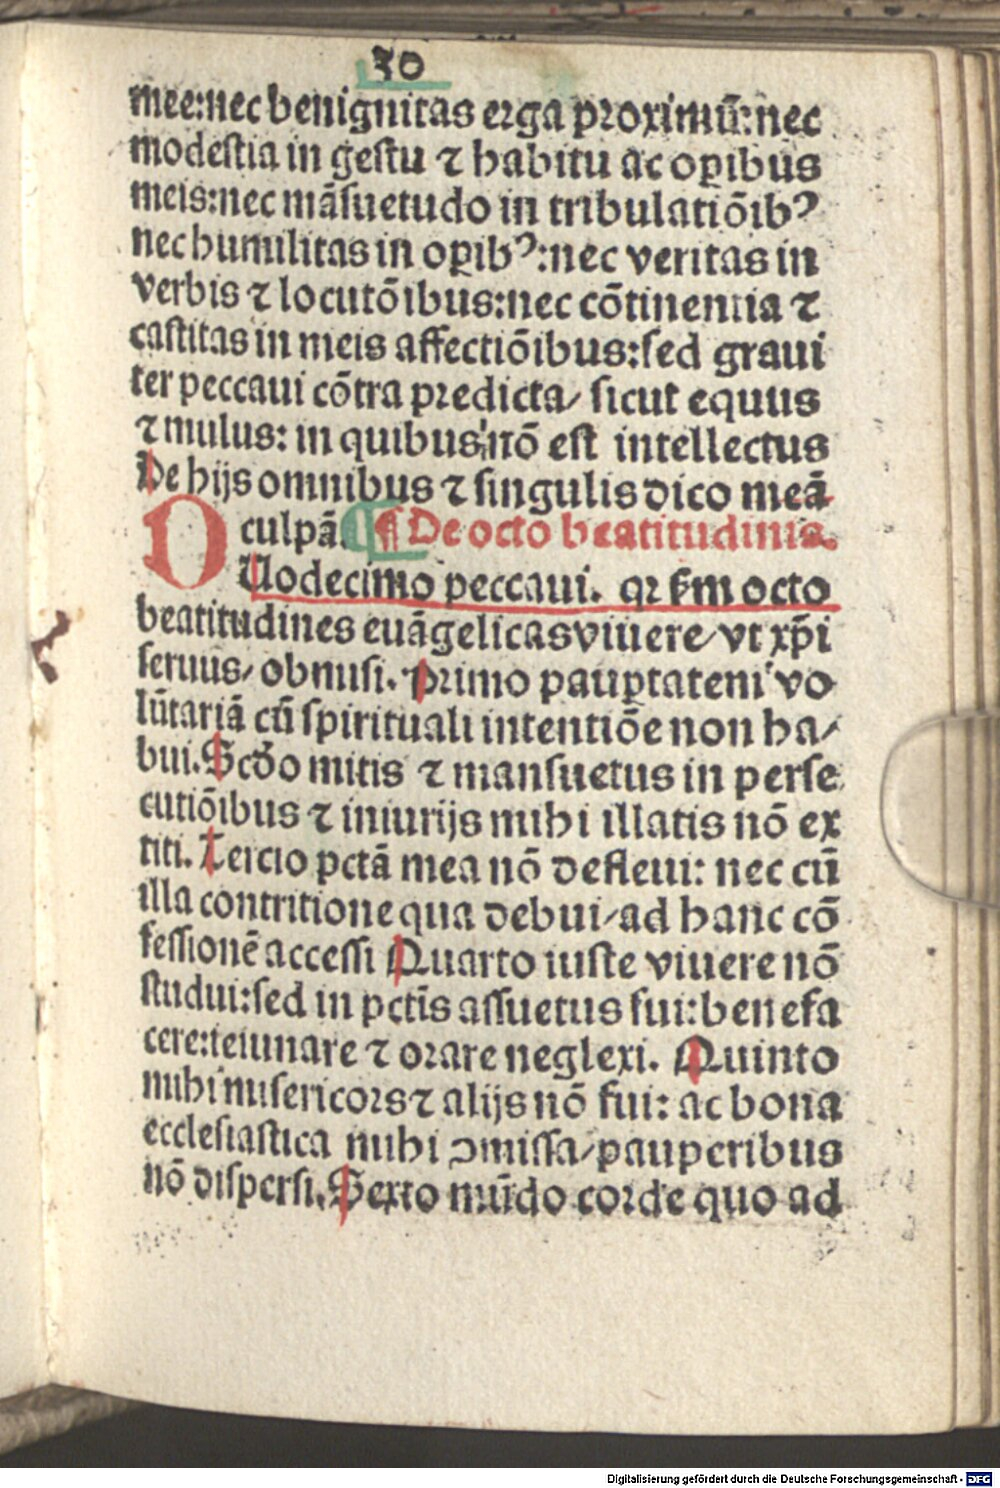 30
mee:nec benignitas erga proximū:nec
modestia in gestu ⁊ habitu ac oꝑibus
meis:nec māsuetudo in tribulatiōib⁹
nec humilitas in oꝑib⁹:nec veritas in
verbis ⁊ locutōibus:nec cōtinentia ⁊
castitas in meis affectiōibus:sed graui
ter peccaui cōtra predicta/ sicut equus
⁊ mulus: in quibus nō est intellectus
De hijs omnibus ⁊ singulis dico meā
culpā. ¶ De octo beatitudinis.
DUodecimo peccaui. qꝛ ẜm octo
beatitudines euāgelicas viuere/ vt xp̄i
seruus/ obmisi. Primo pauꝑtatem vo
lūtariā cū spirituali intentiōe non ha/
bui. Scd̄o mitis ⁊ mansuetus in perse
cutiōibus ⁊ iniurijs mihi illatis nō ex
titi. Tercio pctā mea nō defleui: nec cū
illa contritione qua debui/ad hanc cō
fessionē accessi Quarto iuste viuere nō
studui:sed in pctīs assuetus fui:benefa
cere:ieiunare ⁊ orare neglexi. Quinto
mihi misericors ⁊ alijs nō fui: ac bona
ecclesiastica mihi ꝯmissa/pauperibus
nō dispersi. Sexto mūdo corde quo ad
Digitalisierung gefördert durch die Deutsche Forschungsgemeinschaft - DFG